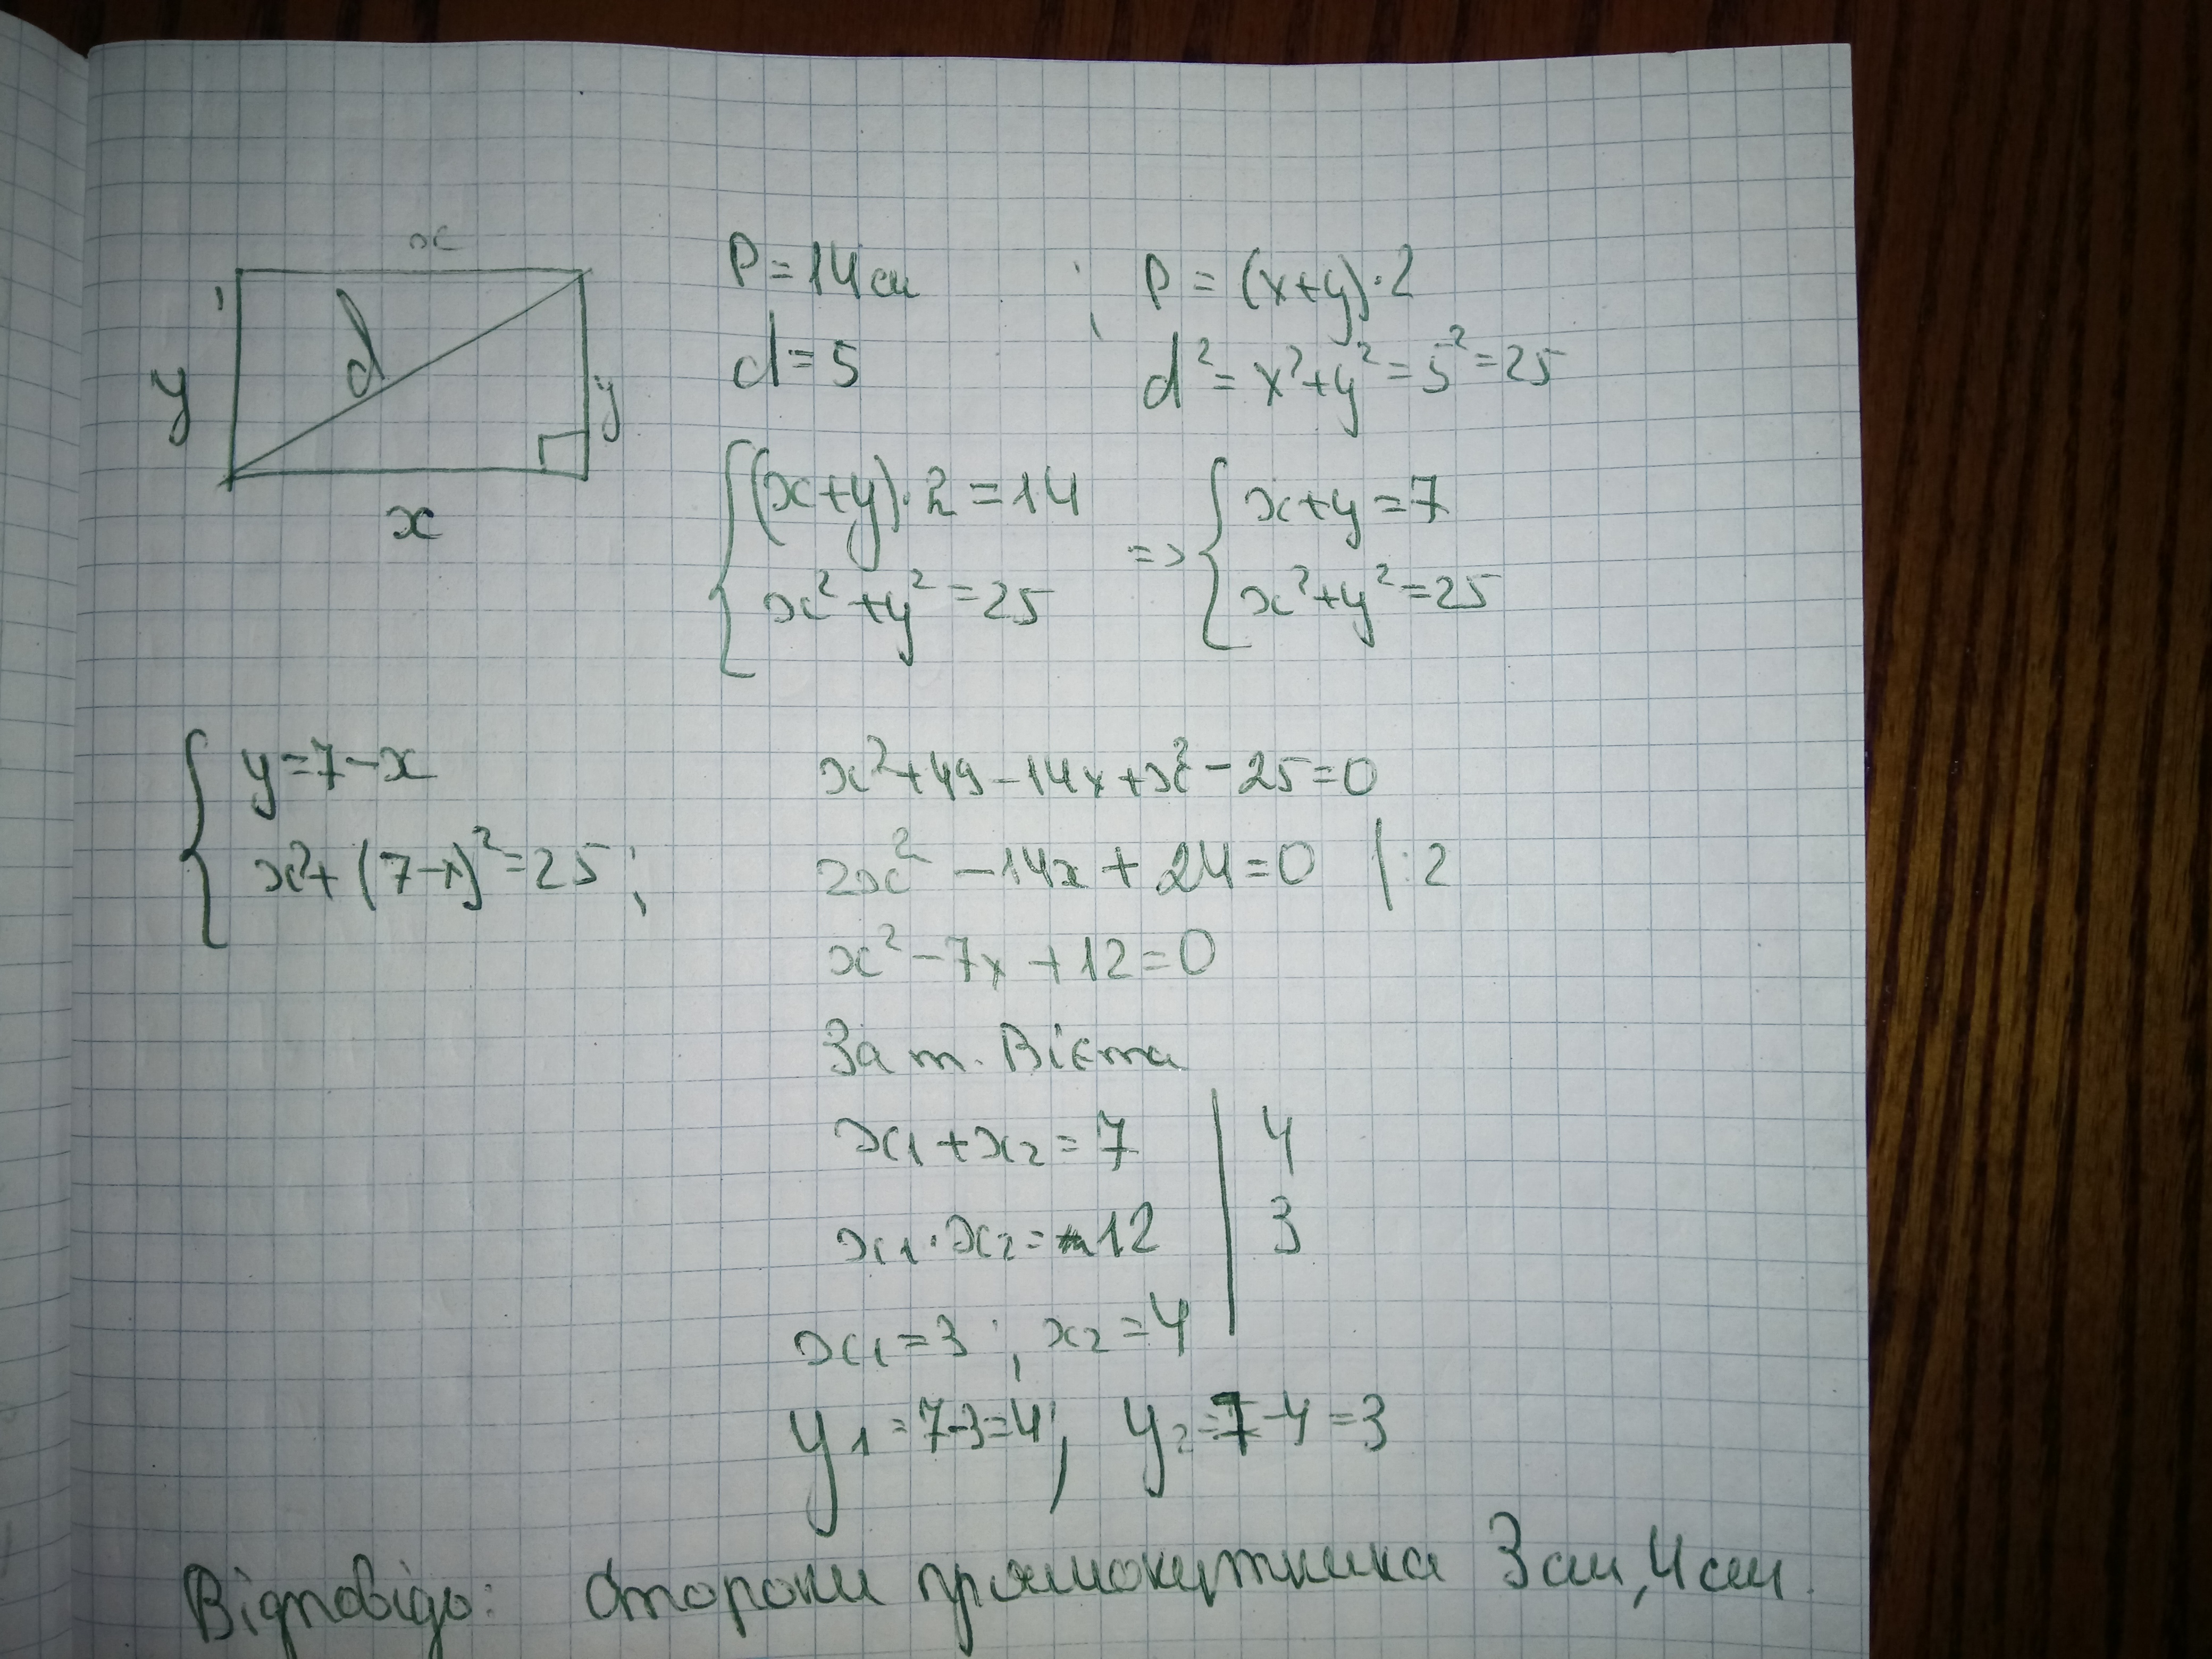 x
y d y
x
P = 14 см ; P = (x+y)·2
d = 5 d² = x²+y² = 5² = 25
{ (x+y)·2 = 14 => { x+y = 7
x²+y² = 25 x²+y² = 25
{ y = 7-x
x²+(7-x)² = 25 ;
x²+49-14x+x²-25=0
2x²-14x+24=0 |:2
x²-7x+12=0
За т. Вієта
x₁+x₂=7 | 4
x₁·x₂=12 | 3
x₁=3 ; x₂=4
y₁=7-3=4; y₂=7-4=3
Відповідь: сторони прямокутника 3 см, 4 см.